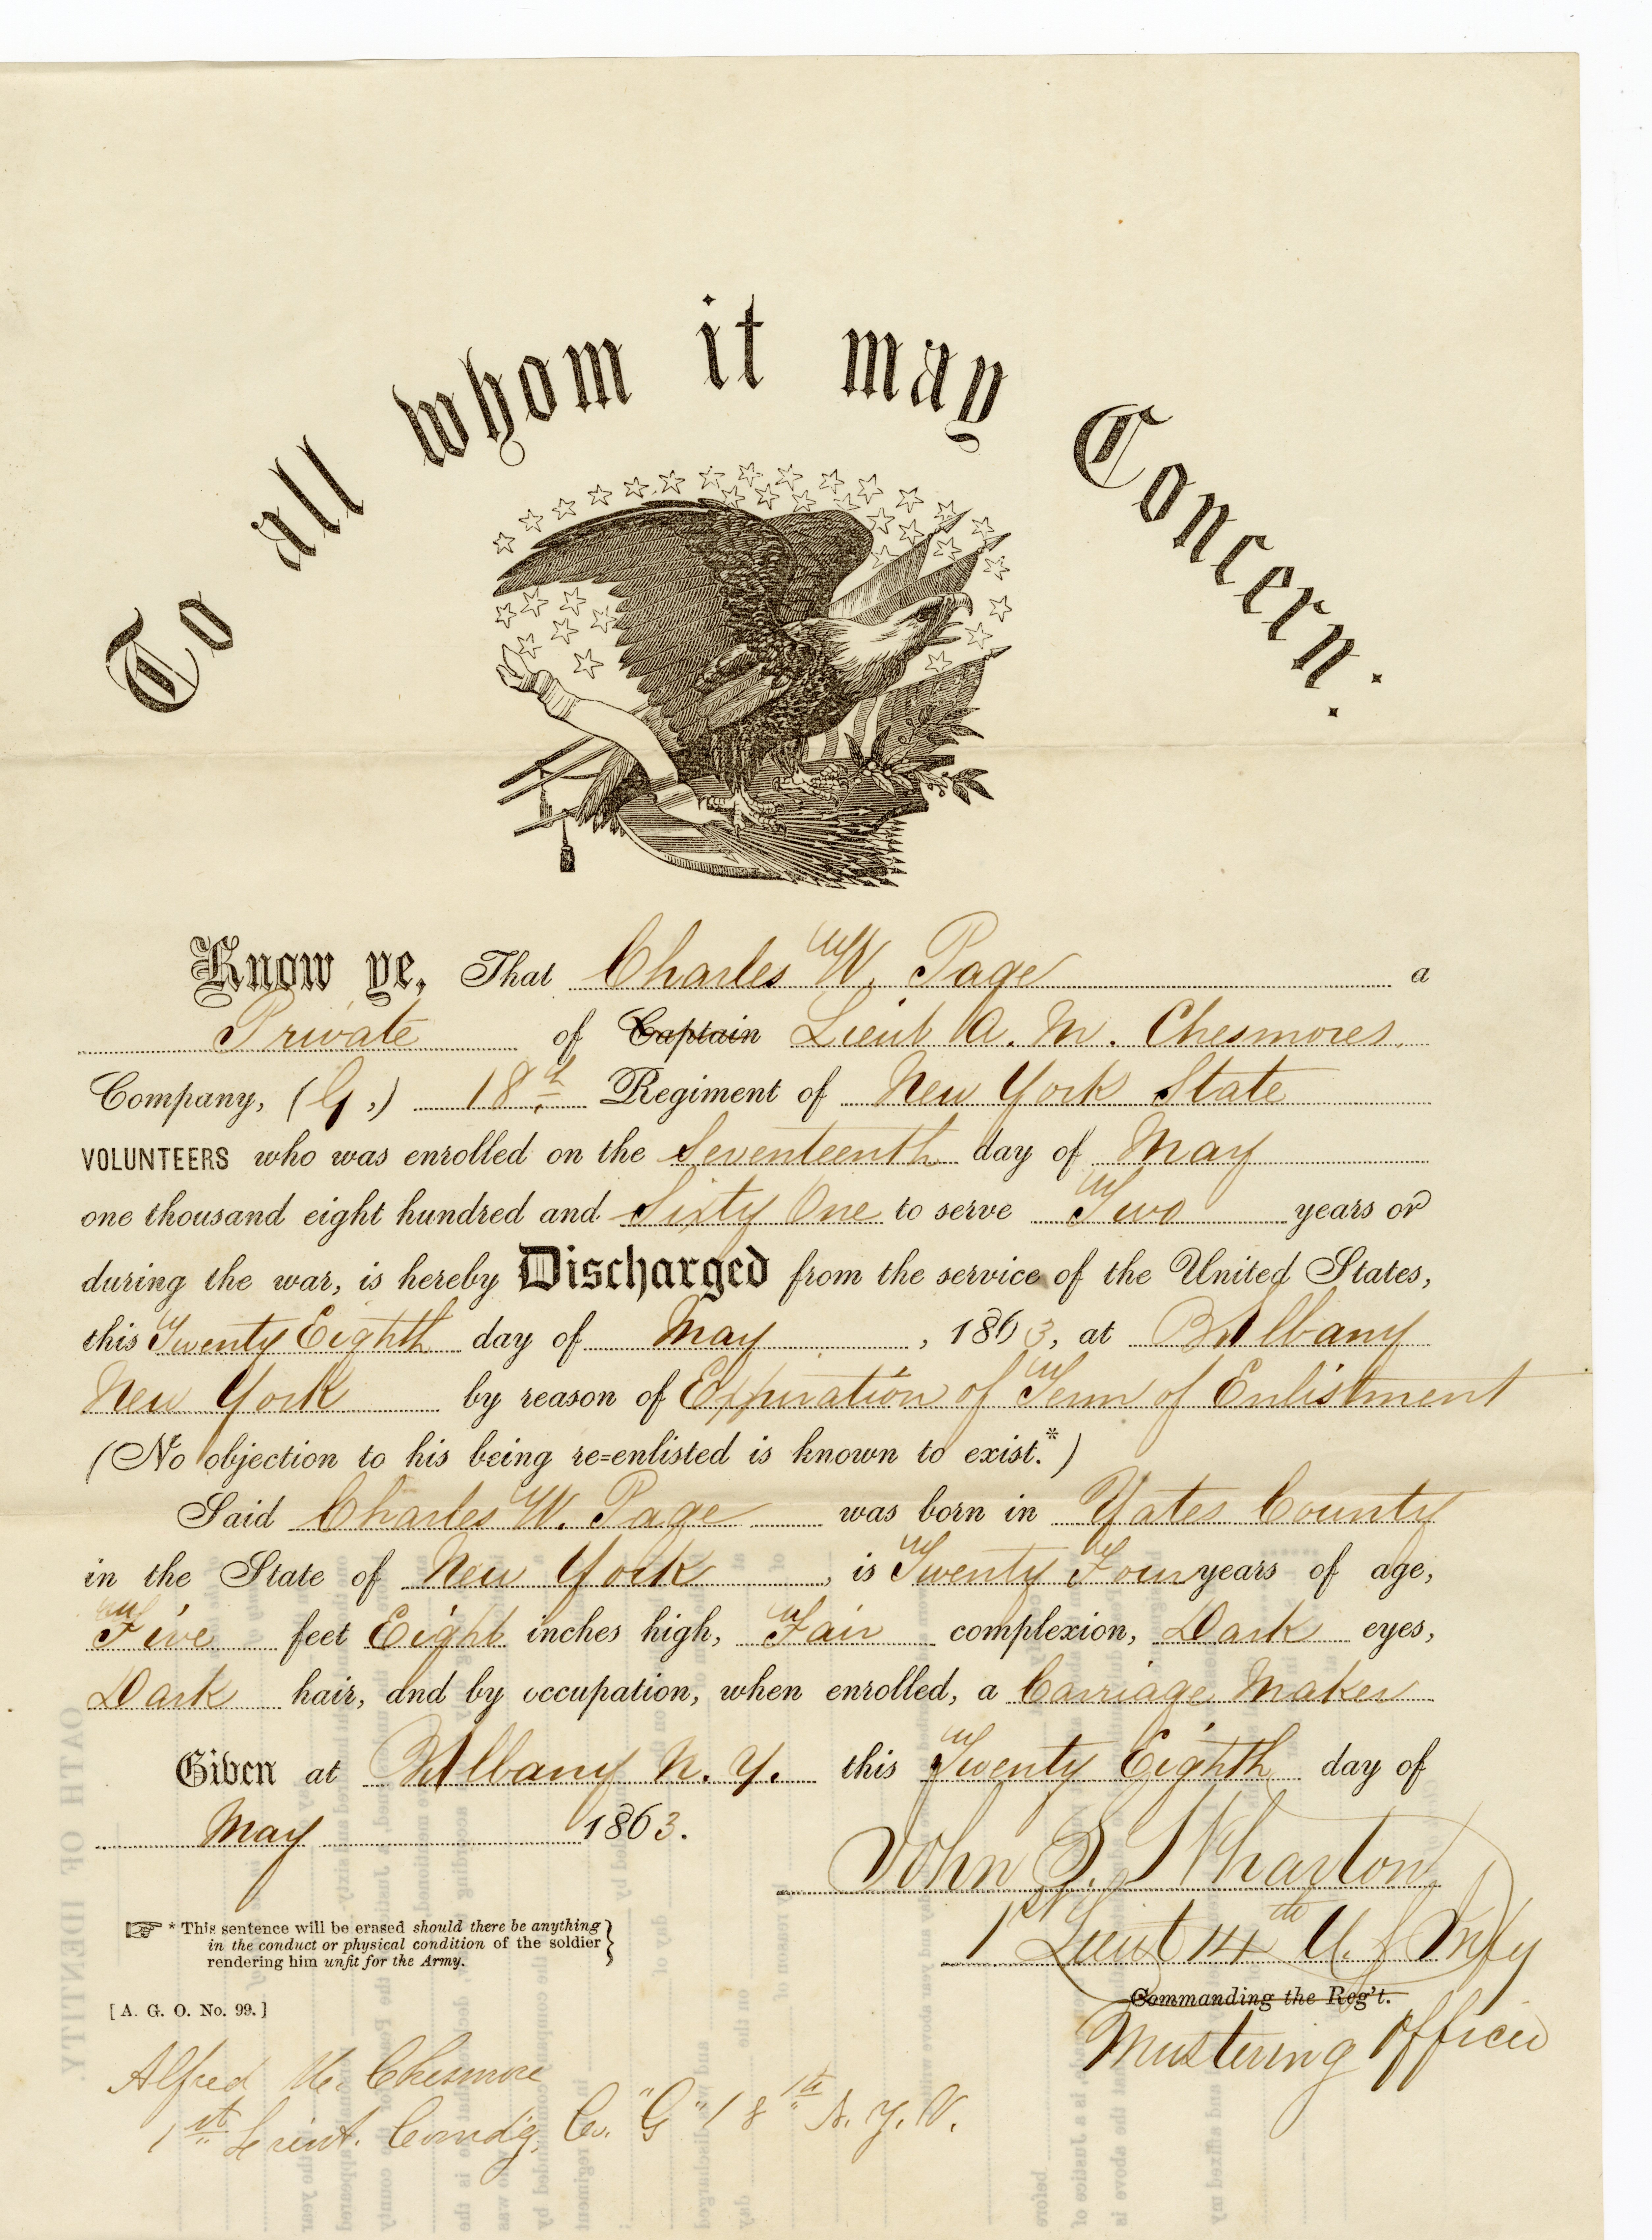 To all whom it may Concern:
Know ye, That Charles W. Page a
Private of Captain Lieut A. M. Chesmores
Company, (G,) 18th Regiment of New York State
VOLUNTEERS who was enrolled on the Seventeenth day of May
one thousand eight hundred and Sixty One to serve Two years or
during the war, is hereby Discharged from the service of the United States,
this Twenty Eighth day of May, 1863, at Albany
New York by reason of Expiration of Term of Enlistment
(No objection to his being re-enlisted is known to exist.*)
Said Charles W. Page was born in Yates County
in the State of New York, is Twenty Four years of age,
Five feet Eight inches high, Fair complexion, Dark eyes,
Dark hair, and by occupation, when enrolled, a Carriage Maker
Given at Albany N. Y. this Twenty Eighth day of
May 1863.
John S. Wharton
1st Lieut 14th U. S. Infy
Commanding the Reg't.
Mustering Officer
* This sentence will be erased should there be anything
in the conduct or physical condition of the soldier
rendering him unfit for the Army.
[A. G. O. No. 99.]
Alfred M. Chesmore
1st Lieut. Comdg. Co. "G" 18th N. Y. V.
OATH OF IDENTITY.